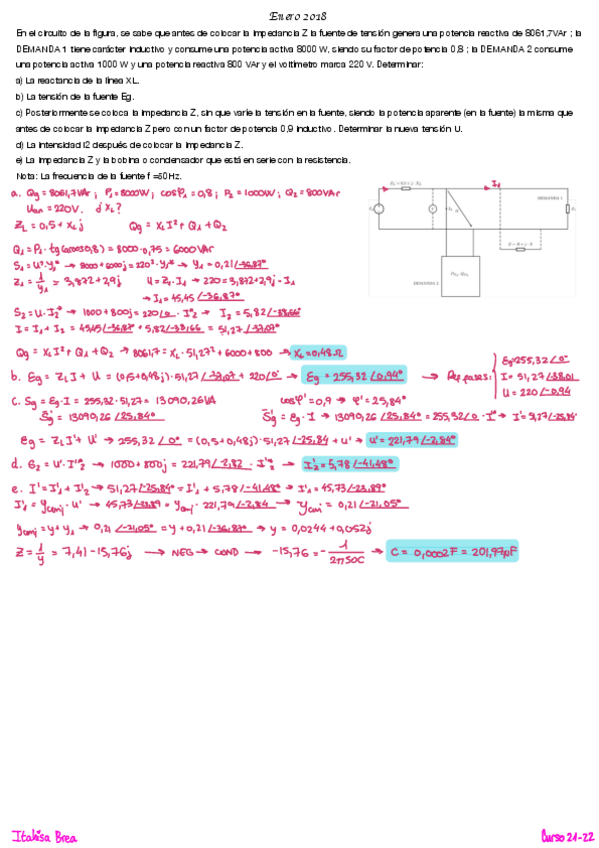 Enero 2018
En el circuito de la figura, se sabe que antes de colocar la impedancia Z la fuente de tensión genera una potencia reactiva de 8061,7VAr ; la
DEMANDA 1 tiene carácter inductivo y consume una potencia activa 8000 W, siendo su factor de potencia 0,8 ; la DEMANDA 2 consume
una potencia activa 1000 W y una potencia reactiva 800 VAr y el voltímetro marca 220 V. Determinar:
a) La reactancia de la línea XL.
b) La tensión de la fuente Eg.
c) Posteriormente se coloca la impedancia Z, sin que varíe la tensión en la fuente, siendo la potencia aparente (en la fuente) la misma que
antes de colocar la impedancia Z pero con un factor de potencia 0,9 inductivo. Determinar la nueva tensión U.
d) La intensidad I2 después de colocar la impedancia Z.
e) La impedancia Z y la bobina o condensador que está en serie con la resistencia.
Nota: La frecuencia de la fuente f =50Hz.
a. Qg = 8061,7VAr ; P₁=8000W ; cosφ₁= 0,8 ; P₂ = 1000W ; Q₂=800VAr
= 220V. ¿XL?
ZL = 0,5 + XLj Qg = XL I² + Q₁ + Q₂
Q₁ = P₁ · tg(arcos0,8) = 8000 · 0,75 = 6000 VAr
S₁ = U²·Y₁* → 8000 + 6000j = 220² · Y₁* → Y₁ = 0,21/-36,87°
Z₁ = 1/Y₁ = 3,872 + 2,9j U = Z₁ · I₁ → 220 = 3,872+2,9j · I₁
→ I₁ = 45,45 /-36,87°
S₂ = U · I₂* → 1000 + 800j = 220/0 · I₂* → I₂ = 5,82 /-38,66
I = I₁ + I₂ = 45,45/-36,87° + 5,82/-38,66 = 51,27 /-37,07°
Qg = XL I² + Q₁ + Q₂ → 8061,7 = XL · 51,27² + 6000 + 800 → XL = 0,48 Ω
b. Eg = ZL I + U = (0,5+0,48j) · 51,27 /-37,07 + 220/0° → Eg = 255,32 /0,94° → Ref fases:
Eg=255,32/0°
I = 51,27 /-38,01
U = 220 /-0,94
c. Sg = Eg · I = 255,32 · 51,27 = 13090,26VA cosφ' = 0,9 → φ' = 25,84°
Sg' = 13090,26 /25,84° Sg' = Eg · I → 13090,26 /25,84° = 255,32/0 · I'*
Eg = ZL I' + U' → 255,32 /0° = (0,5 + 0,48j) · 51,27 /-25,84 + U' → U' = 221,79 /-2,84°
d. S₂ = U' · I'₂* → 1000 + 800j = 221,79 /-2,82 · I'₂* → I'₂ = 5,78 /-41,48°
e. I' = I'₁ + I'₂ → 51,27 /-25,84° = I'₁ + 5,78 /-41,48° → I'₁ = 45,73 /-23,89°
I'₁ = Yconj · U' → 45,73 /-23,89 = Yconj · 221,79 /-2,84 → Yconj = 0,21 /-21,05°
Yconj = Y + Y₁ → 0,21 /-21,05° = Y + 0,21 /-36,87° → Y = 0,0244 + 0,052j
Z = 1/Y = 7,41 - 15,76j → NEG → COND → -15,76 = - 1/2π50C → C = 0,0002F = 201,97µF
I₁
DEMANDA 1
DEMANDA 2
Itahisa Brea
Curso 21-22